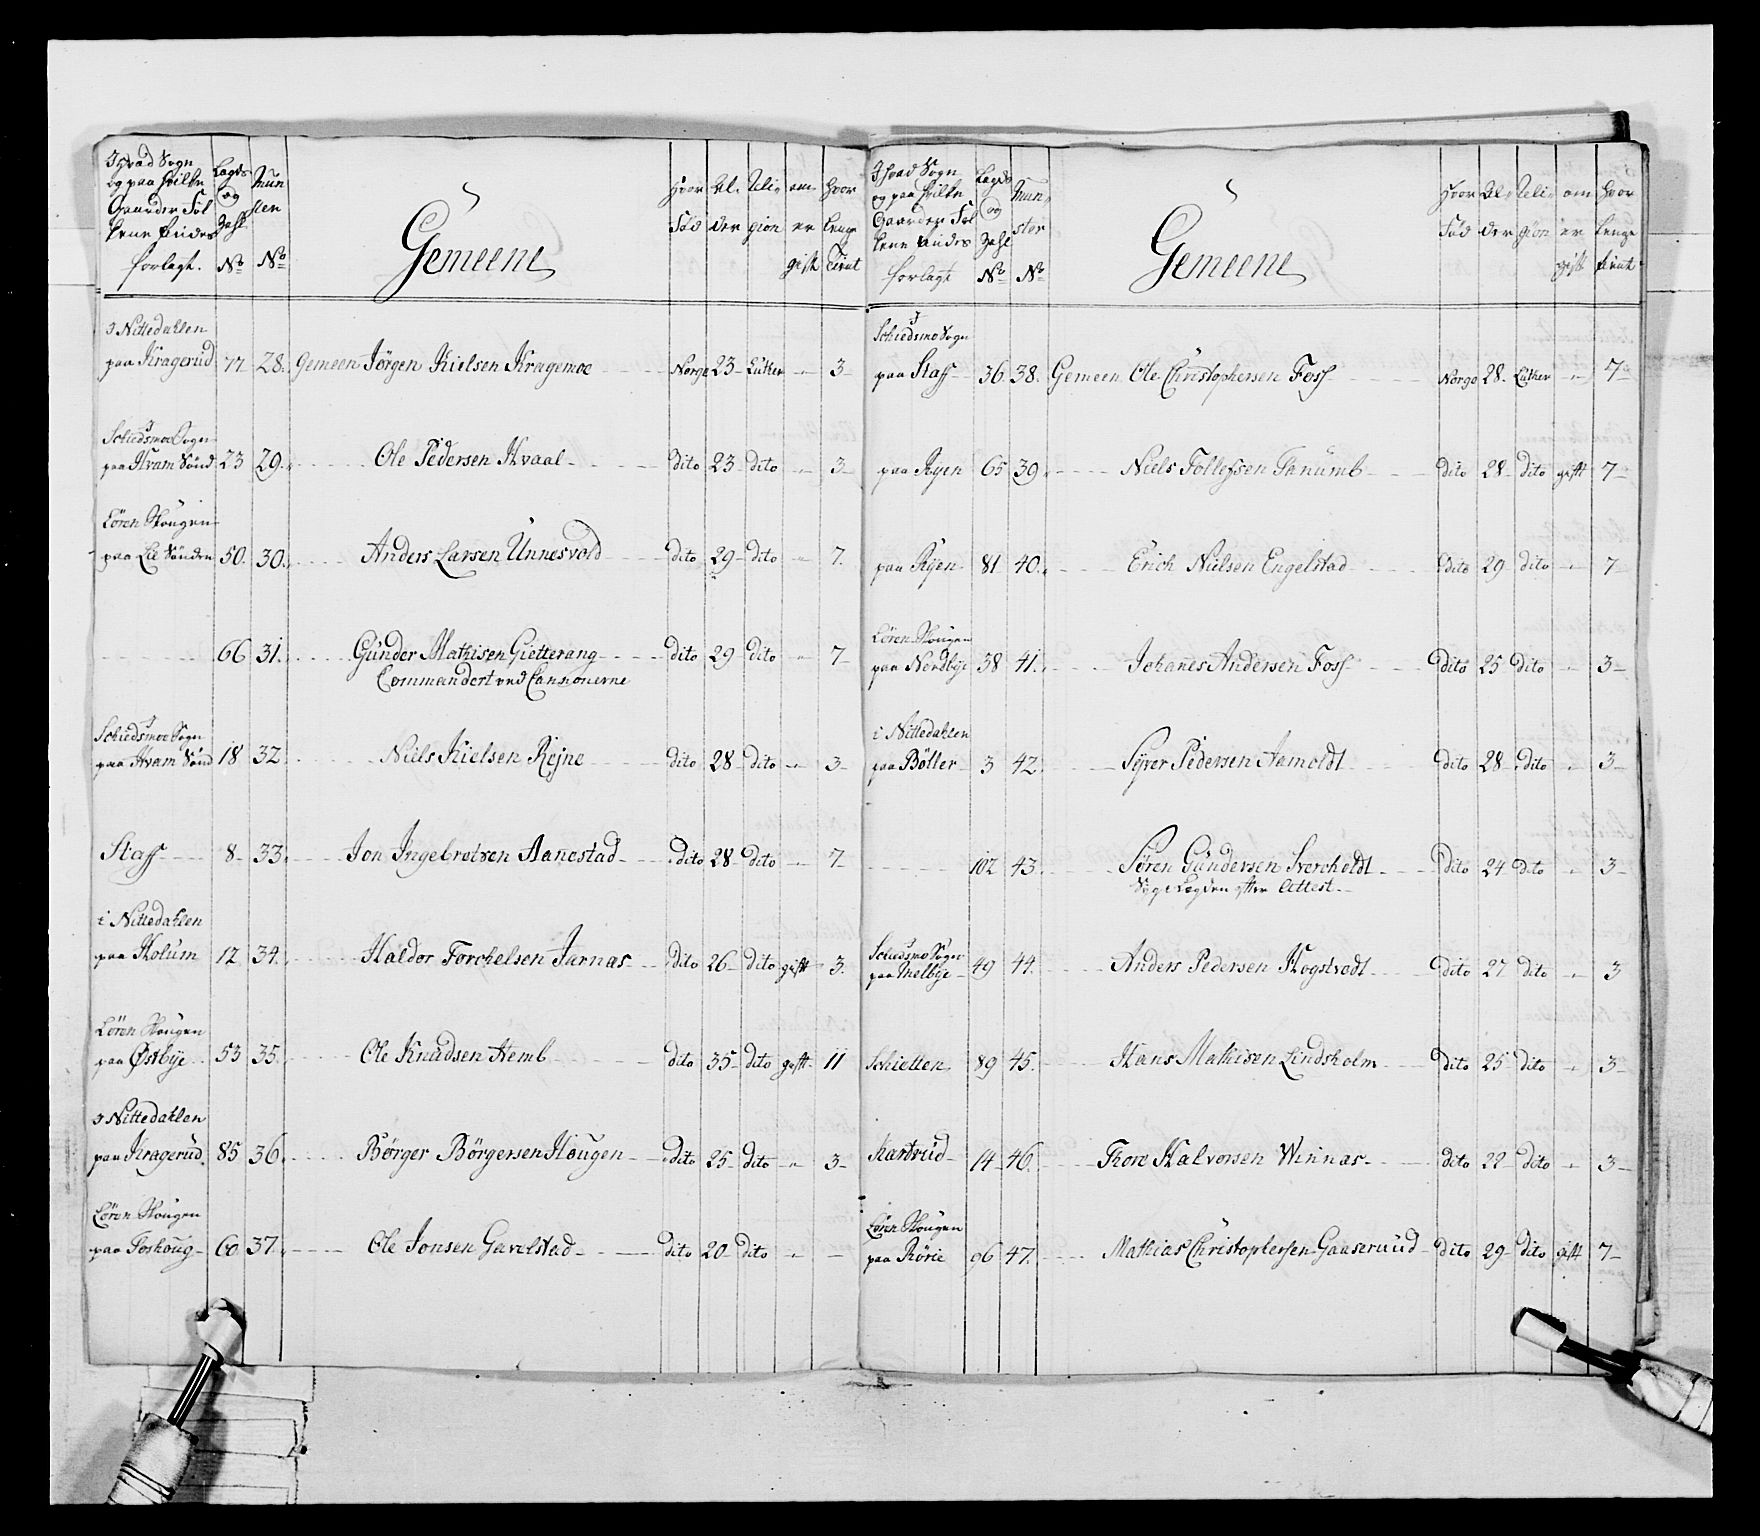 I hvad Sogn
og paa hvilke
Gaarder Fol
kene findes
forlagt.
Lægds
og
Zahl
No
Mun
ster
No
Gemeene
Hvor
Fød
Al-
der
Reli-
gion
om
er
gift
Hvor
lenge
tient
i Nittedahlen
paa Kragerud 77 28. Gemeen Jörgen Kielsen Kragemoe Norge 23 Luther 3
I
Schiedsmoe Sogn
paa Hvam Sönd 23 29. Ole Pedersen Hvaal dito 23 dito 3
Lören Skougen
paa Lie Sönden 50. 30. Anders Larsen Unnesvold dito 29 dito 7.
66 31. Gunder Mathisen Gietterang dito 29 dito 7
Commandert ved Cannonerne
I
Schiedsmoe Sogn
paa Hvam Sönd 18 32 Niels Kielsen Rejne dito 28 dito 3
Staff 8 33. Jon Ingebretsen Aanestad dito 28 dito 7
i Nittedahlen
paa Holum 12 34. Haldor Torchelsen Jarnas dito 26 dito gift 3.
Lören Skougen
paa Østbye 53 35. Ole Knudsen Hemb dito 35 dito gift 11
i Nittedahlen
paa Kragerud 85 36. Börger Börgersen Hougen dito 25 dito 3
Lören Skougen
paa Toshoug 60 37. Ole Jonsen Gavelstad dito 20 dito
I hvad Sogn
og paa hvilke
Gaarder Fol
kene findes
forlagt
Lægds
og
Zahl
No
Mun
ster
No
Gemeene
Hvor
Fød
Al-
der
Reli-
gion
om
er
gift
hvor
lenge
tient
I
Schiedsmo Sogn
paa Staff 36. 38. Gemeen Ole Christophersen Foss Norge 28. Luther 7
paa Ryen 65 39. Niels Tollefsen Tanumb dito 28 dito gift 7
paa Ryen 81 40. Erich Nielsen Engelstad dito 29 dito 7
Lören Skougen
paa Nordbye 38 41. Johanes Andersen Foss dito 25 dito 3
i Nittedahlen
paa Böller 3 42. Syver Pedersen Aamoldt dito 28 dito 3
102 43. Sören Gundersen Svereholdt dito 24 dito 3
Syg i Legden efter Attest.
Schiedsmo Sogn
paa Melbye 49 44. Anders Pedersen Hogstvedt dito 27 dito 3
Schietten 89 45. Hans Mathisen Lindsholm dito 25 dito 3
Hartvud 14 46. Thore Halvorsen Winnas dito 22 dito 3
Lören Skougen
paa Rörie 96 47. Mathias Christophersen Gaaseruud dito 29 dito gift 7